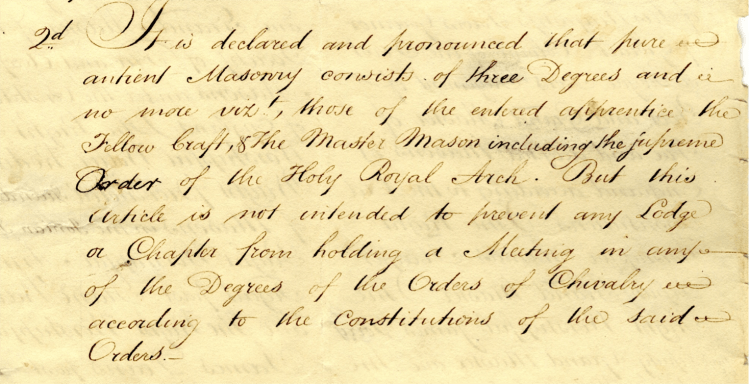 2d. It is declared and pronounced that pure
antient Masonry consists of three Degrees and
no more vizt, those of the entered apprentice the
Fellow Craft, & the Master Mason including the Supreme
Order of the Holy Royal Arch. But this
article is not intended to prevent any Lodge
or Chapter from holding a Meeting in any
of the Degrees of the Orders of Chivalry
according to the Constitutions of the said
Orders.—